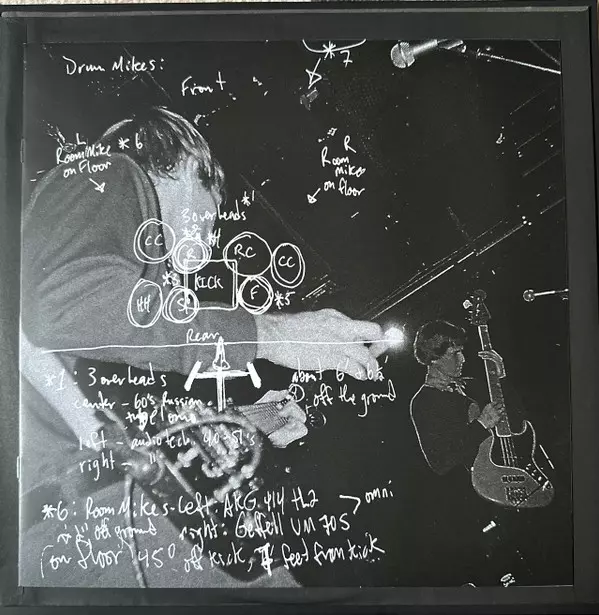 Drum Mikes:
Front
*7
L
Room Mike *6
on Floor
R
Room
mike
on floor
3 overheads *1
CC
R
*4
RC
CC
*3
KICK
HH
S
F
*5
Rear
*1: 3 overheads
center - 60's Russian
tube
about 6' + 6½'
off the ground
left - audiotech 4051's
right - "
*6: Room Mikes - left: AKG 414
off ground right: Gefell UM 70S
omni
(on floor) 45° off kick, feet from kick